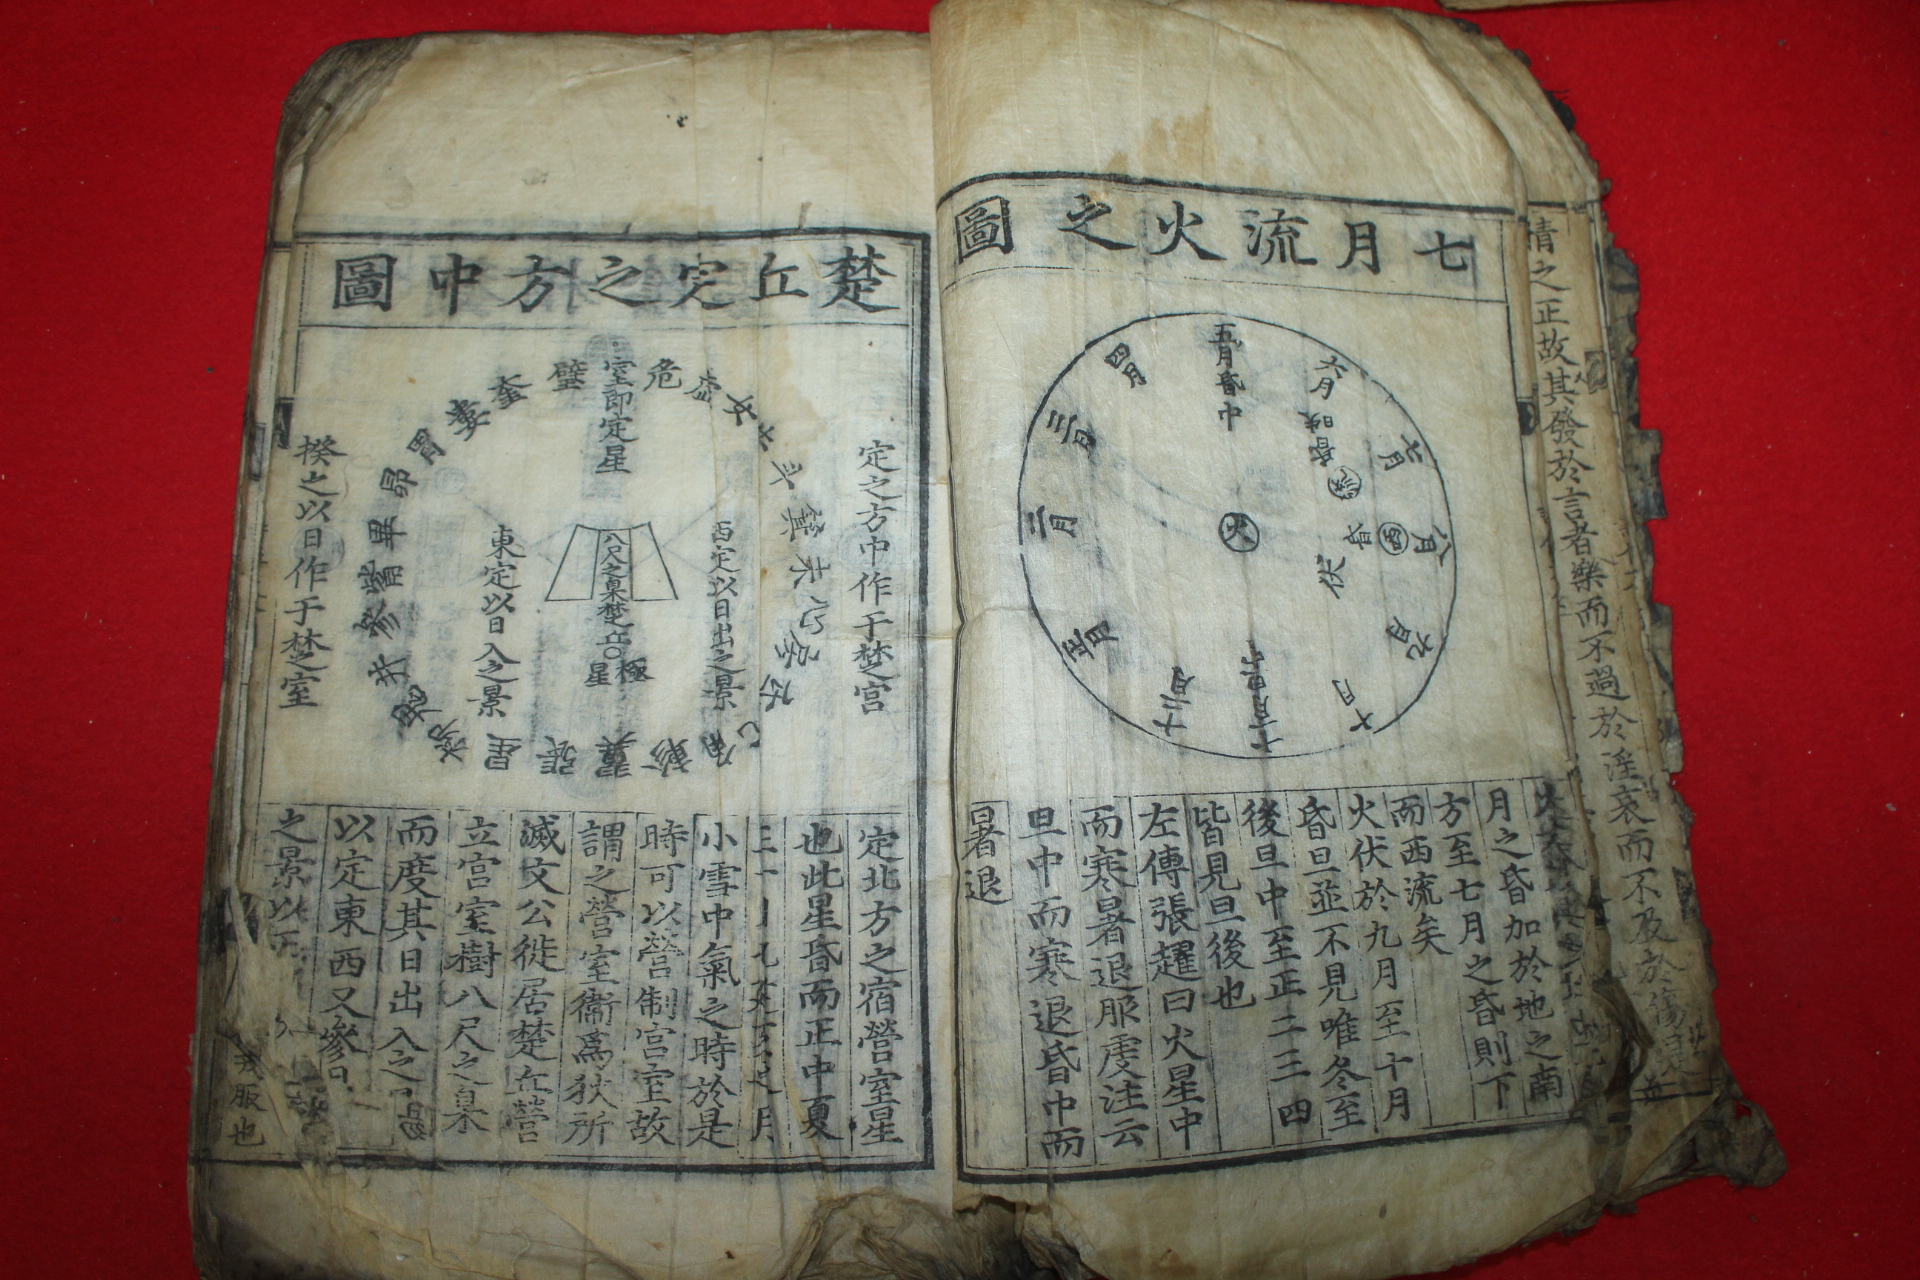 情之正故其發於言者樂而不過於淫哀而不及於傷
七月流火之圖
五月昏中
六月
昏昳
七月
流
八月
酉
昏
伏
九月
十月
十一月
十二月
正月
二月
三月
四月
火
月之昏加於地之南
方至七月之昏則下
而西流矣
火伏於九月至十月
昏旦並不見唯冬至
後旦中至正二三四
皆見旦後也
左傳張趯曰火星中
而寒暑退服虔注云
旦中而寒退昏中而
暑退
楚丘定之方中圖
定之方中作于楚宮
室即定星
危
虛
女
牛
斗
箕
尾
心
房
氐
亢
角
軫
翼
張
星
柳
鬼
井
參
觜
畢
昴
胃
婁
奎
壁
西定以日出之景
八尺之臬楚丘
極星
東定以日入之景
揆之以日作于楚室
定北方之宿營室星
也此星昏而正中夏
小雪中氣之時於是
時可以營制宮室故
謂之營室衞爲狄所
滅文公徙居楚丘營
立宮室樹八尺之臬
而度其日出入之
以定東西又參日
之景以正
服也